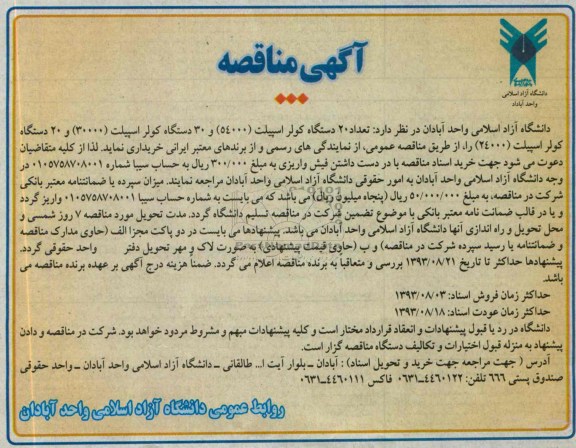 آگهی مناقصه
دانشگاه آزاد اسلامی
واحد آبادان
دانشگاه آزاد اسلامی واحد آبادان در نظر دارد: تعداد۲۰ دستگاه کولر اسپیلت (۵۴۰۰۰) و ۳۰ دستگاه کولر اسپیلت (۳۰۰۰۰) و ۲۰ دستگاه
کولر اسپیلت (۲۴۰۰۰) را، از طریق مناقصه عمومی، از نمایندگی های رسمی و از برندهای معتبر ایرانی خریداری نماید. لذا از کلیه متقاضیان
دعوت می شود جهت خرید اسناد مناقصه با در دست داشتن فیش واریزی به مبلغ ۳۰۰/۰۰۰ ریال به حساب سیبا شماره ۰۱۰۵۷۵۸۷۰۸۰۰۱ در
وجه دانشگاه آزاد اسلامی واحد آبادان به امور حقوقی دانشگاه آزاد اسلامی واحد آبادان مراجعه نمایند. میزان سپرده یا ضمانتنامه معتبر بانکی
شرکت در مناقصه، به مبلغ ۵۰/۰۰۰/۰۰۰ ریال (پنجاه میلیون ریال) می باشد که می بایست به شماره حساب سیبا ۰۱۰۵۷۵۸۷۰۸۰۰۱ واریز گردد
و یا در قالب ضمانت نامه معتبر بانکی با موضوع تضمین شرکت در مناقصه تسلیم دانشگاه گردد. مدت تحویل مورد مناقصه ۷ روز شمسی و
محل تحویل و راه اندازی آنها دانشگاه آزاد اسلامی واحد آبادان می باشد. پیشنهادها می بایست در دو پاکت مجزا الف (حاوی مدارک مناقصه
و ضمانتنامه یا رسید سپرده شرکت در مناقصه) و ب (حاوی قیمت پیشنهادی) به صورت لاک و مهر تحویل دفتر واحد حقوقی گردد.
پیشنهادها حداکثر تا تاریخ ۱۳۹۳/۰۸/۲۱ بررسی و متعاقبا به برنده مناقصه اعلام می گردد. ضمناً هزینه درج آگهی بر عهده برنده مناقصه می
باشد.
حداکثر زمان فروش اسناد: ۱۳۹۳/۰۸/۰۳
حداکثر زمان عودت اسناد: ۱۳۹۳/۰۸/۱۸
دانشگاه در رد یا قبول پیشنهادات و انعقاد قرارداد مختار است و کلیه پیشنهادات مبهم و مشروط مردود خواهد بود. شرکت در مناقصه و دادن
پیشنهاد به منزله قبول اختیارات و تکالیف دستگاه مناقصه گزار است.
آدرس ( جهت مراجعه جهت خرید و تحویل اسناد) : آبادان ـ بلوار آیت ا... طالقانی ـ دانشگاه آزاد اسلامی واحد آبادان ـ واحد حقوقی
صندوق پستی ۶۶۶ تلفن: ۴۴۶۰۱۲۲ـ۰۶۳۱ فاکس ۴۴۶۰۱۱۱ـ۰۶۳۱
روابط عمومی دانشگاه آزاد اسلامی واحد آبادان